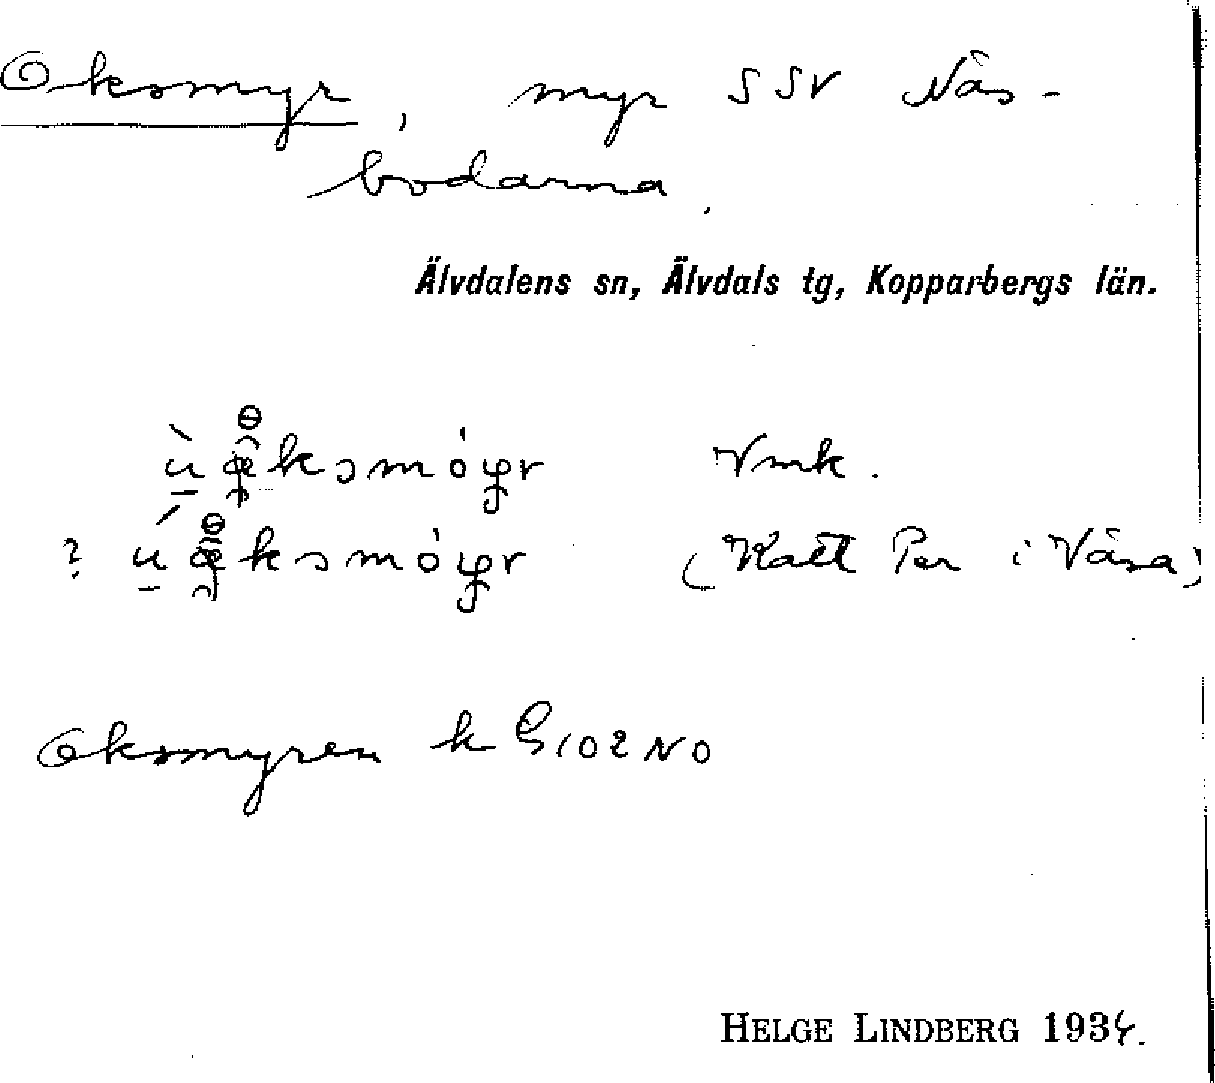 Oksmyr, myr SSV Näs-
bodarna.
Älvdalens sn, Älvdals tg, Kopparbergs län.
Vmk.
? (Katt Per i Våsa)
Oksmyren k G 102 NO
HELGE LINDBERG 1934.